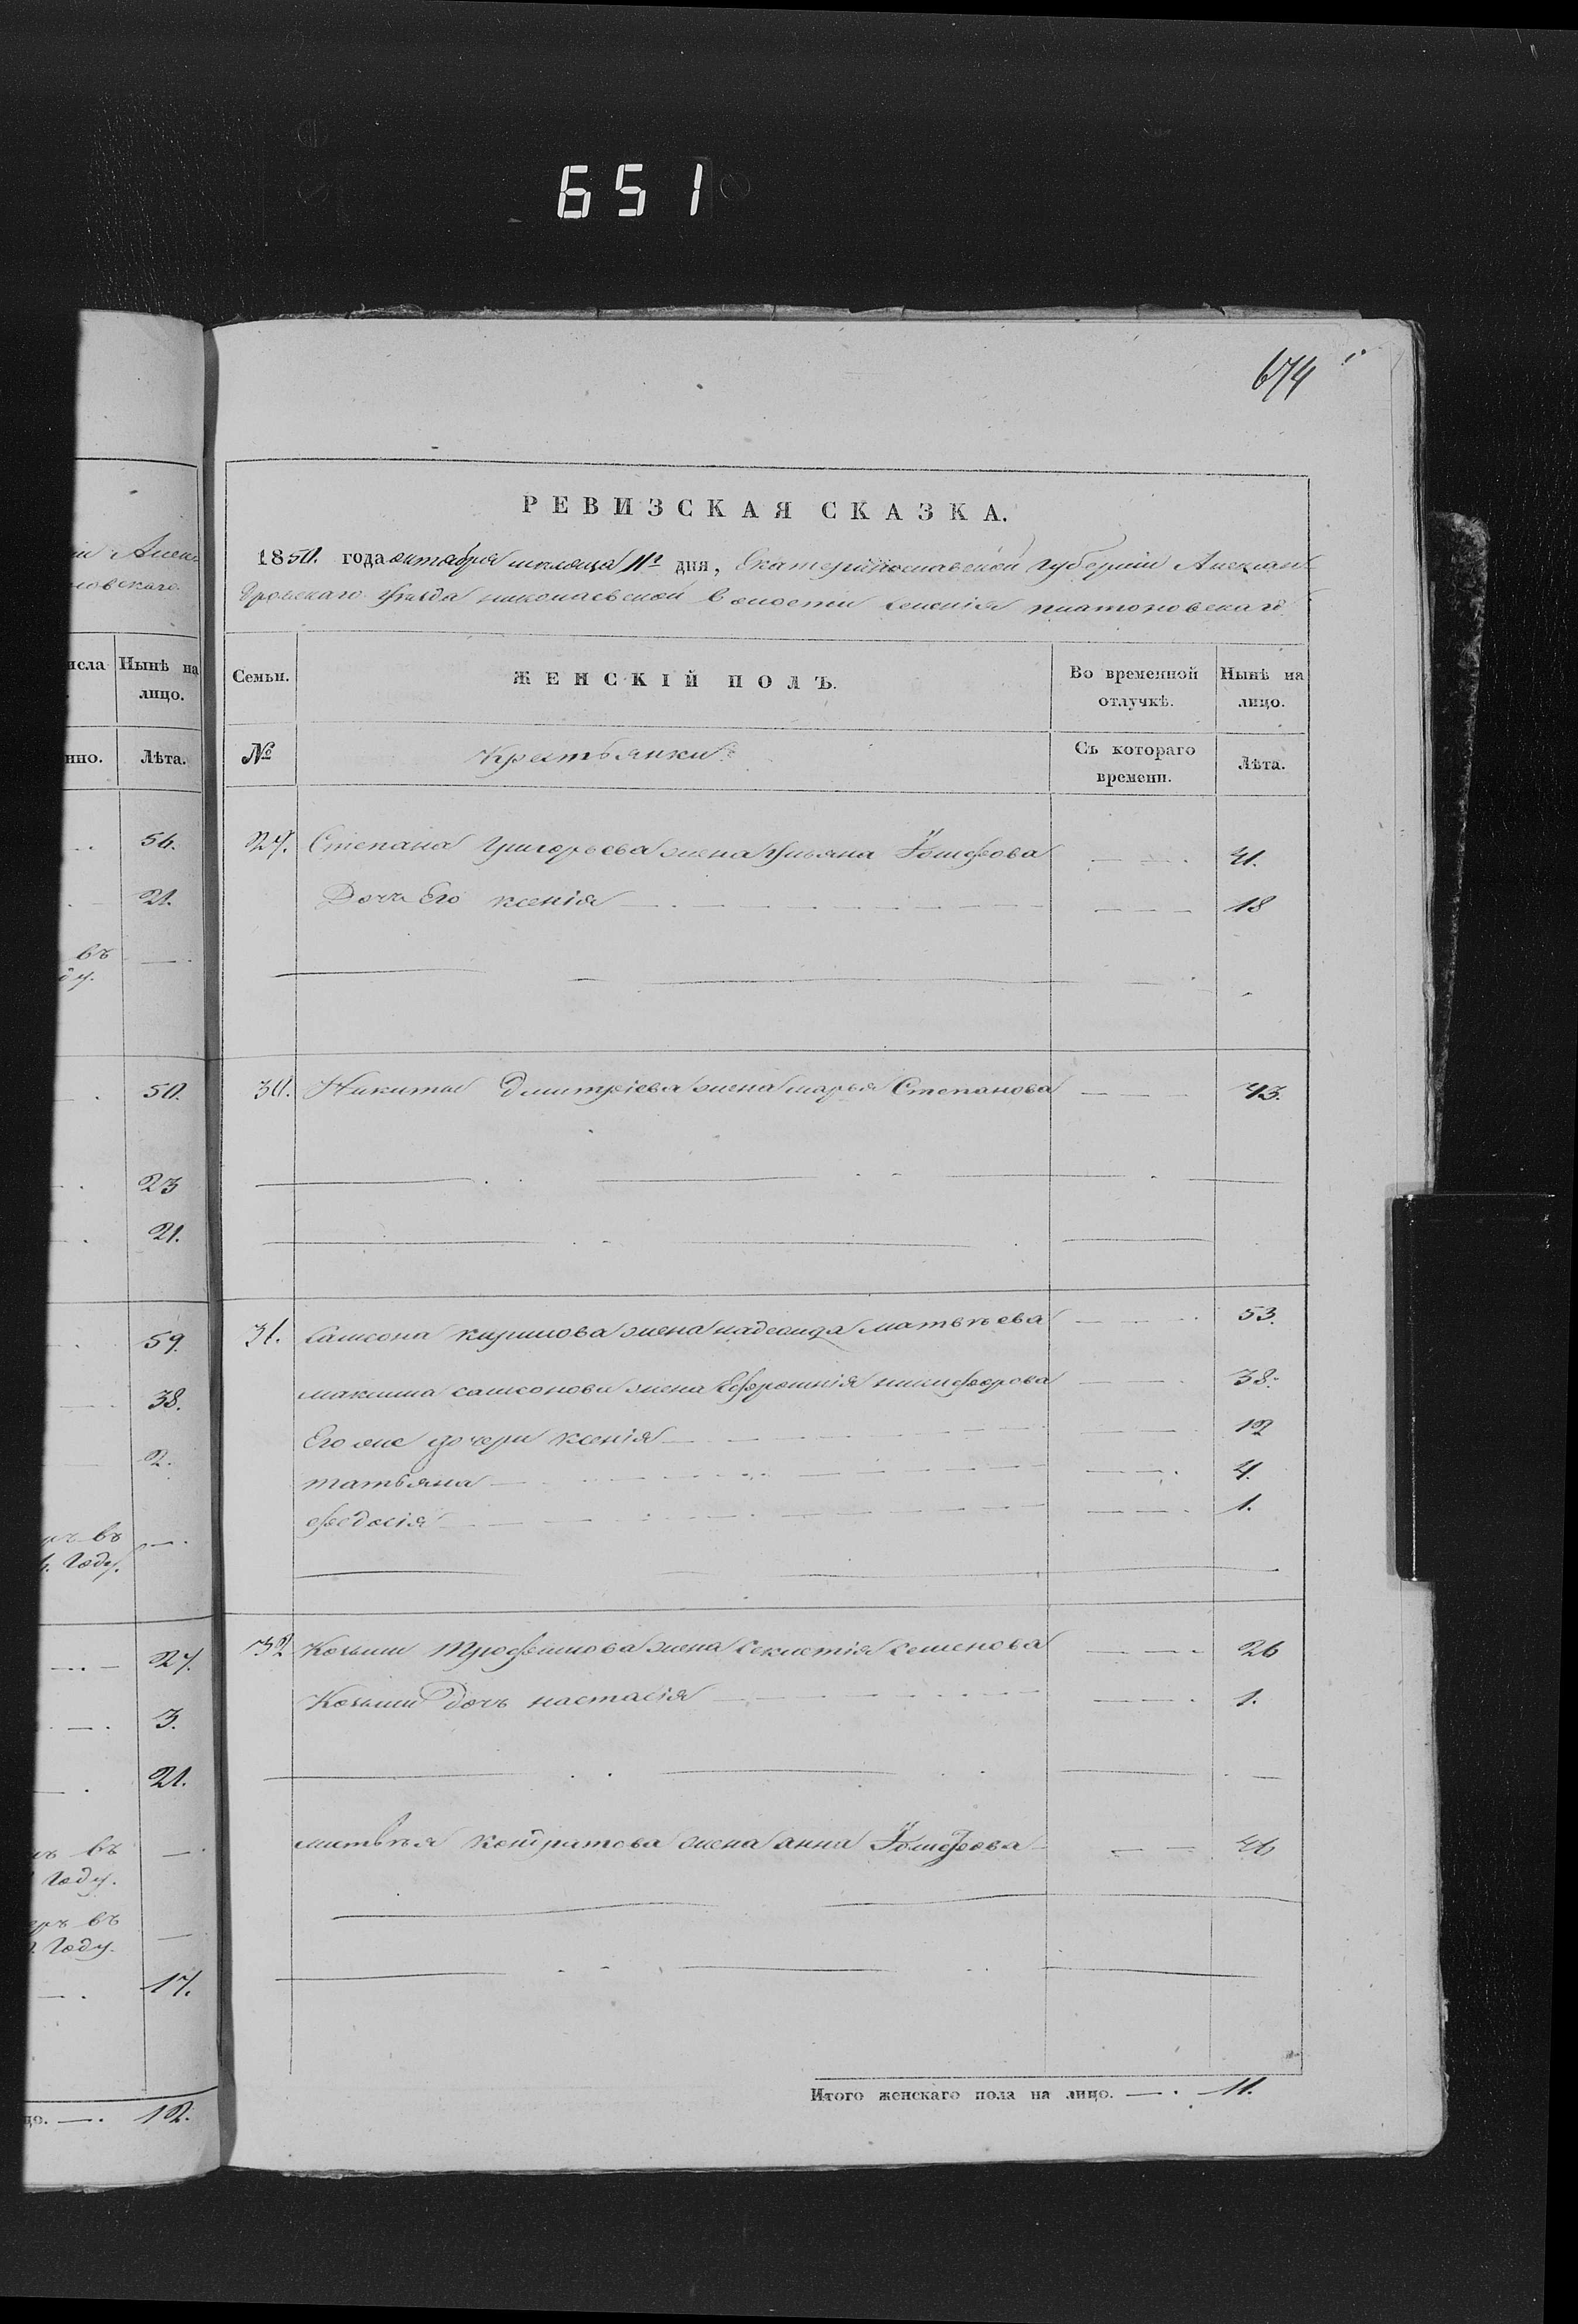 651
674
РЕВИЗСКАЯ СКАЗКА.
1850. года октября месяца 11 дня, Екатеринославской Губерніи Алексан-
дровскаго Уезда николаевской волости селенія платоновскаго
Семьи. ЖЕНСКІЙ ПОЛЪ. Во временной отлучкѣ. Нынѣ на лицо.
№ Крестьянки Съ котораго времени. Лѣта.
29. Степана Григорьева жена Ульяна 41.
Дочь Его ксенія 18
30. Никиты Дмитріева жена марья Степанова 43.
31. Самсона кирилова жена надежда матвѣева 53.
максима самсонова жена Ефросинія никифорова 38.
Его же дочери ксенія 12
татьяна 4.
федосія 1.
32 Козьмы Трофимова жена Семенова 26
Козьмы дочь настасія 1.
матвѣя кондратова жена анна 46
Итого женскаго пола на лицо. 11.
Нынѣ на лицо.
Лѣта.
56.
21.
въ
50.
23
21.
59.
38.
2.
въ
Году.
27.
3.
21.
въ
Году.
въ
Году.
17.
12.